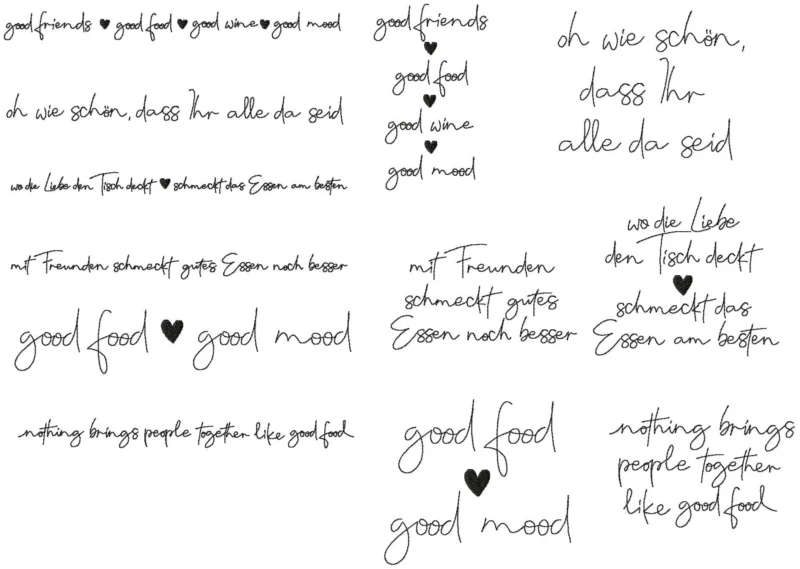 good friends ♥ good food ♥ good wine ♥ good mood
oh wie schön, dass Ihr alle da seid
wo die Liebe den Tisch deckt ♥ schmeckt das Essen am besten
mit Freunden schmeckt gutes Essen noch besser
good food ♥ good mood
nothing brings people together like good food
good friends
♥
good food
♥
good wine
♥
good mood
oh wie schön,
dass Ihr
alle da seid
mit Freunden
schmeckt gutes
Essen noch besser
wo die Liebe
den Tisch deckt
♥
schmeckt das
Essen am besten
good food
♥
good mood
nothing brings
people together
like good food